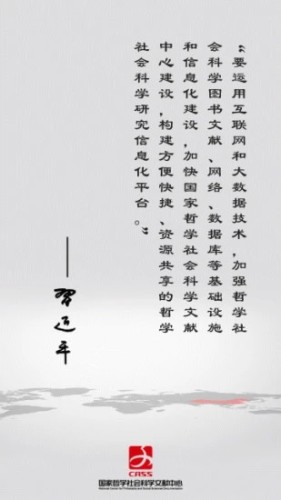 “要运用互联网和大数据技术，加强哲学社
会科学图书文献、网络、数据库等基础设施
和信息化建设，加快国家哲学社会科学文献
中心建设，构建方便快捷、资源共享的哲学
社会科学研究信息化平台。”
——习近平
CASS
国家哲学社会科学文献中心